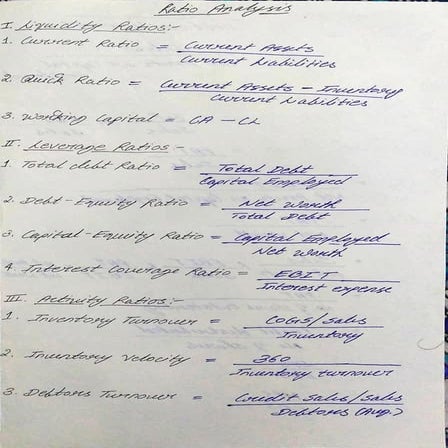 Ratio Analysis
I. Liquidity Ratios:-
1. Current Ratio = Current Assets / Current Liabilities
2. Quick Ratio = Current Assets - Inventory / Current Liabilities
3. Working Capital = CA - CL
II. Leverage Ratios:-
1. Total debt Ratio = Total Debt / Capital Employed
2. Debt-Equity Ratio = Net Worth / Total Debt
3. Capital-Equity Ratio = Capital Employed / Net Worth
4. Interest Coverage Ratio = EBIT / Interest expense
III. Activity Ratios:-
1. Inventory Turnover = COGS/Sales / Inventory
2. Inventory Velocity = 360 / Inventory turnover
3. Debtors Turnover = Credit Sales/Sales / Debtors (Avg.)